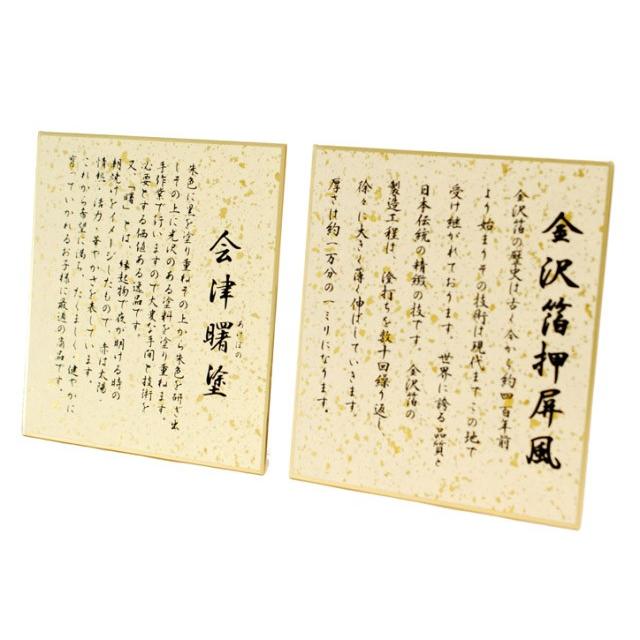 会津曙塗
あけぼの
朱色に黒を塗り重ねその上から朱色を研ぎ出
しその上に光沢のある塗料を塗り重ねます。
手作業で行いますので大変な手間と技術を
必要とする価値ある逸品です。
又、「曙」とは、縁起物で夜が明ける時の
朝焼けをイメージしたもので、赤は太陽
情熱、活力、華やかさを表しています。
これから希望に満ち、たくましく、健やかに
育っていかれるお子様に最適の商品です。
金沢箔押屏風
金沢箔の歴史は古く今から約四百年前
より始まりその技術は現代までこの地で
受け継がれております。世界に誇る品質と
日本伝統の精緻の技です。金沢箔の
製造工程は、澄打ちを数十回繰り返し、
徐々に大きく薄く伸ばしていきます。
厚さは約一万分の一ミリになります。